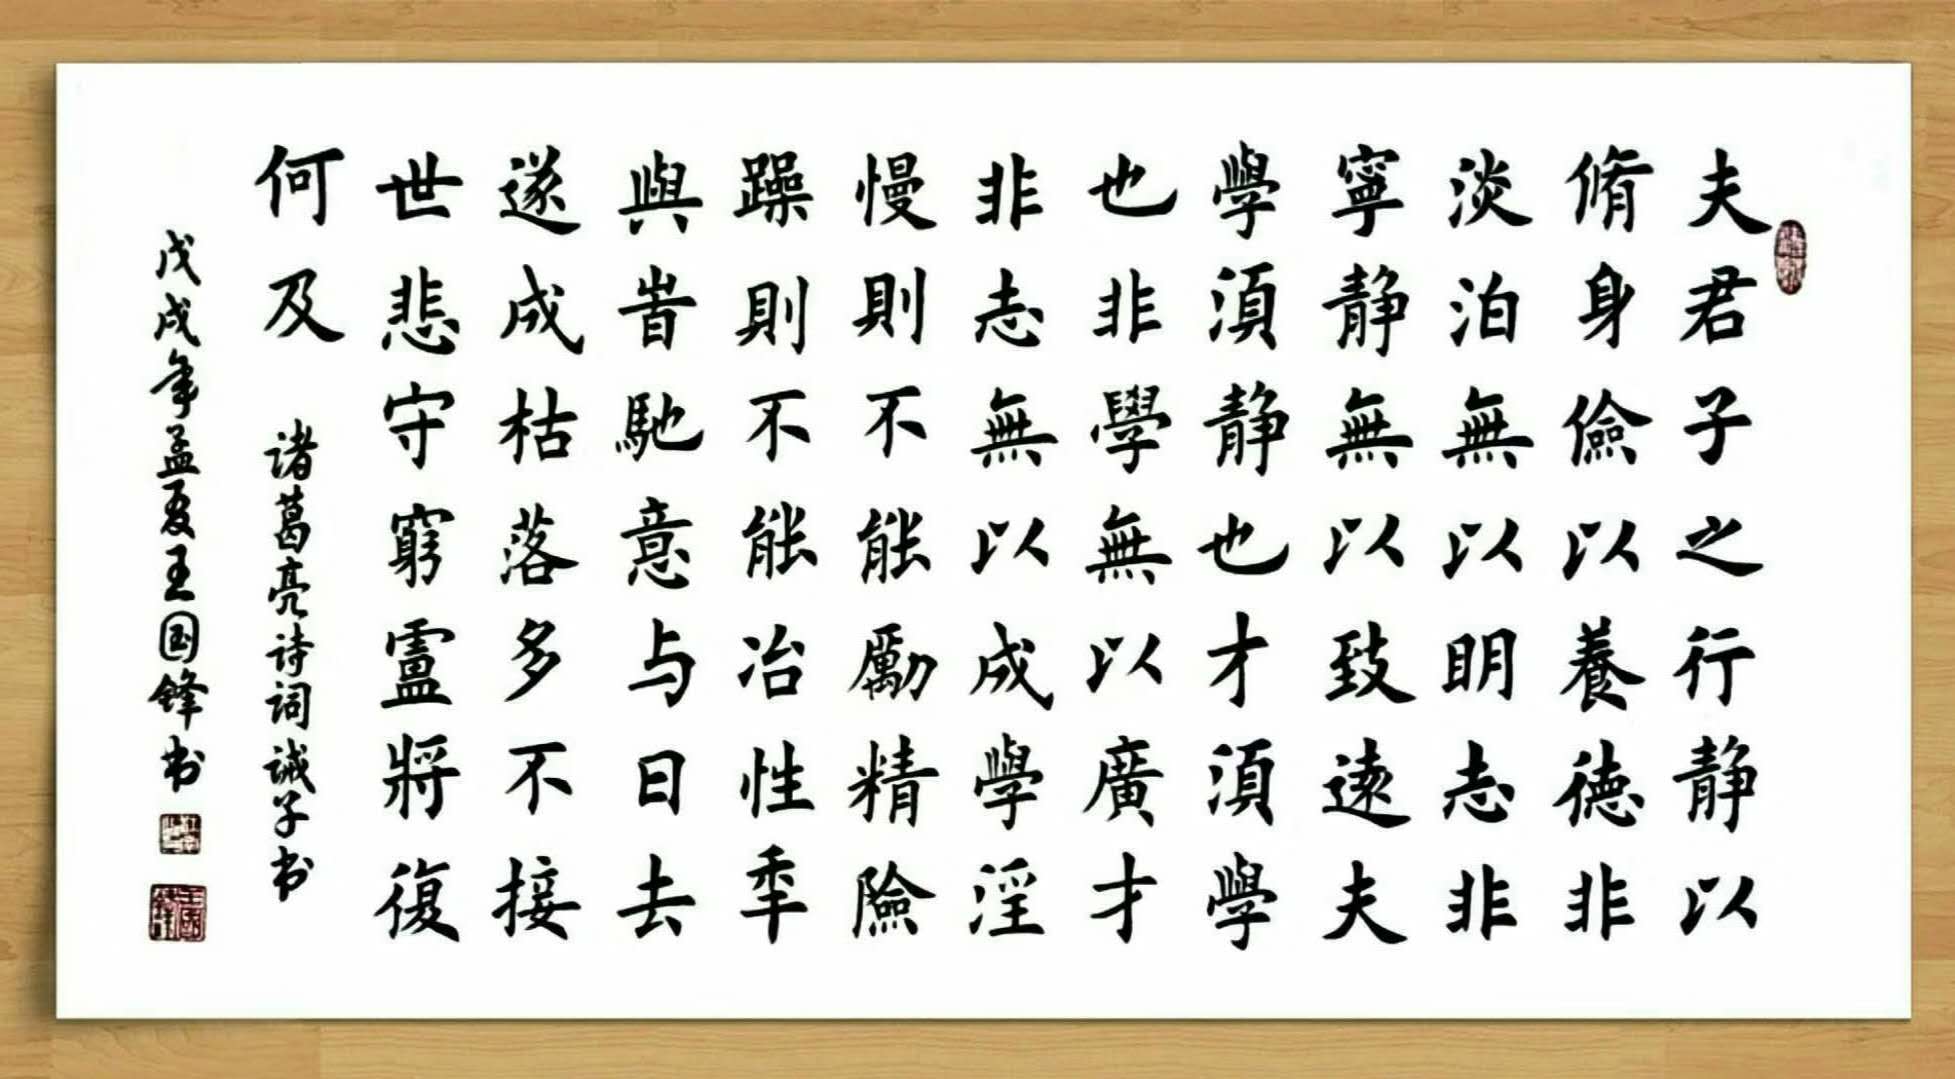 夫君子之行静以
脩身儉以養德非
淡泊無以明志非
寧静無以致遠夫
學須静也才須學
也非學無以廣才
非志無以成學淫
慢則不能勵精險
躁則不能冶性秊
與旹馳意与日去
遂成枯落多不接
世悲守窮盧將復
何及 诸葛亮诗词诫子书
戊戌年孟夏王国锋书